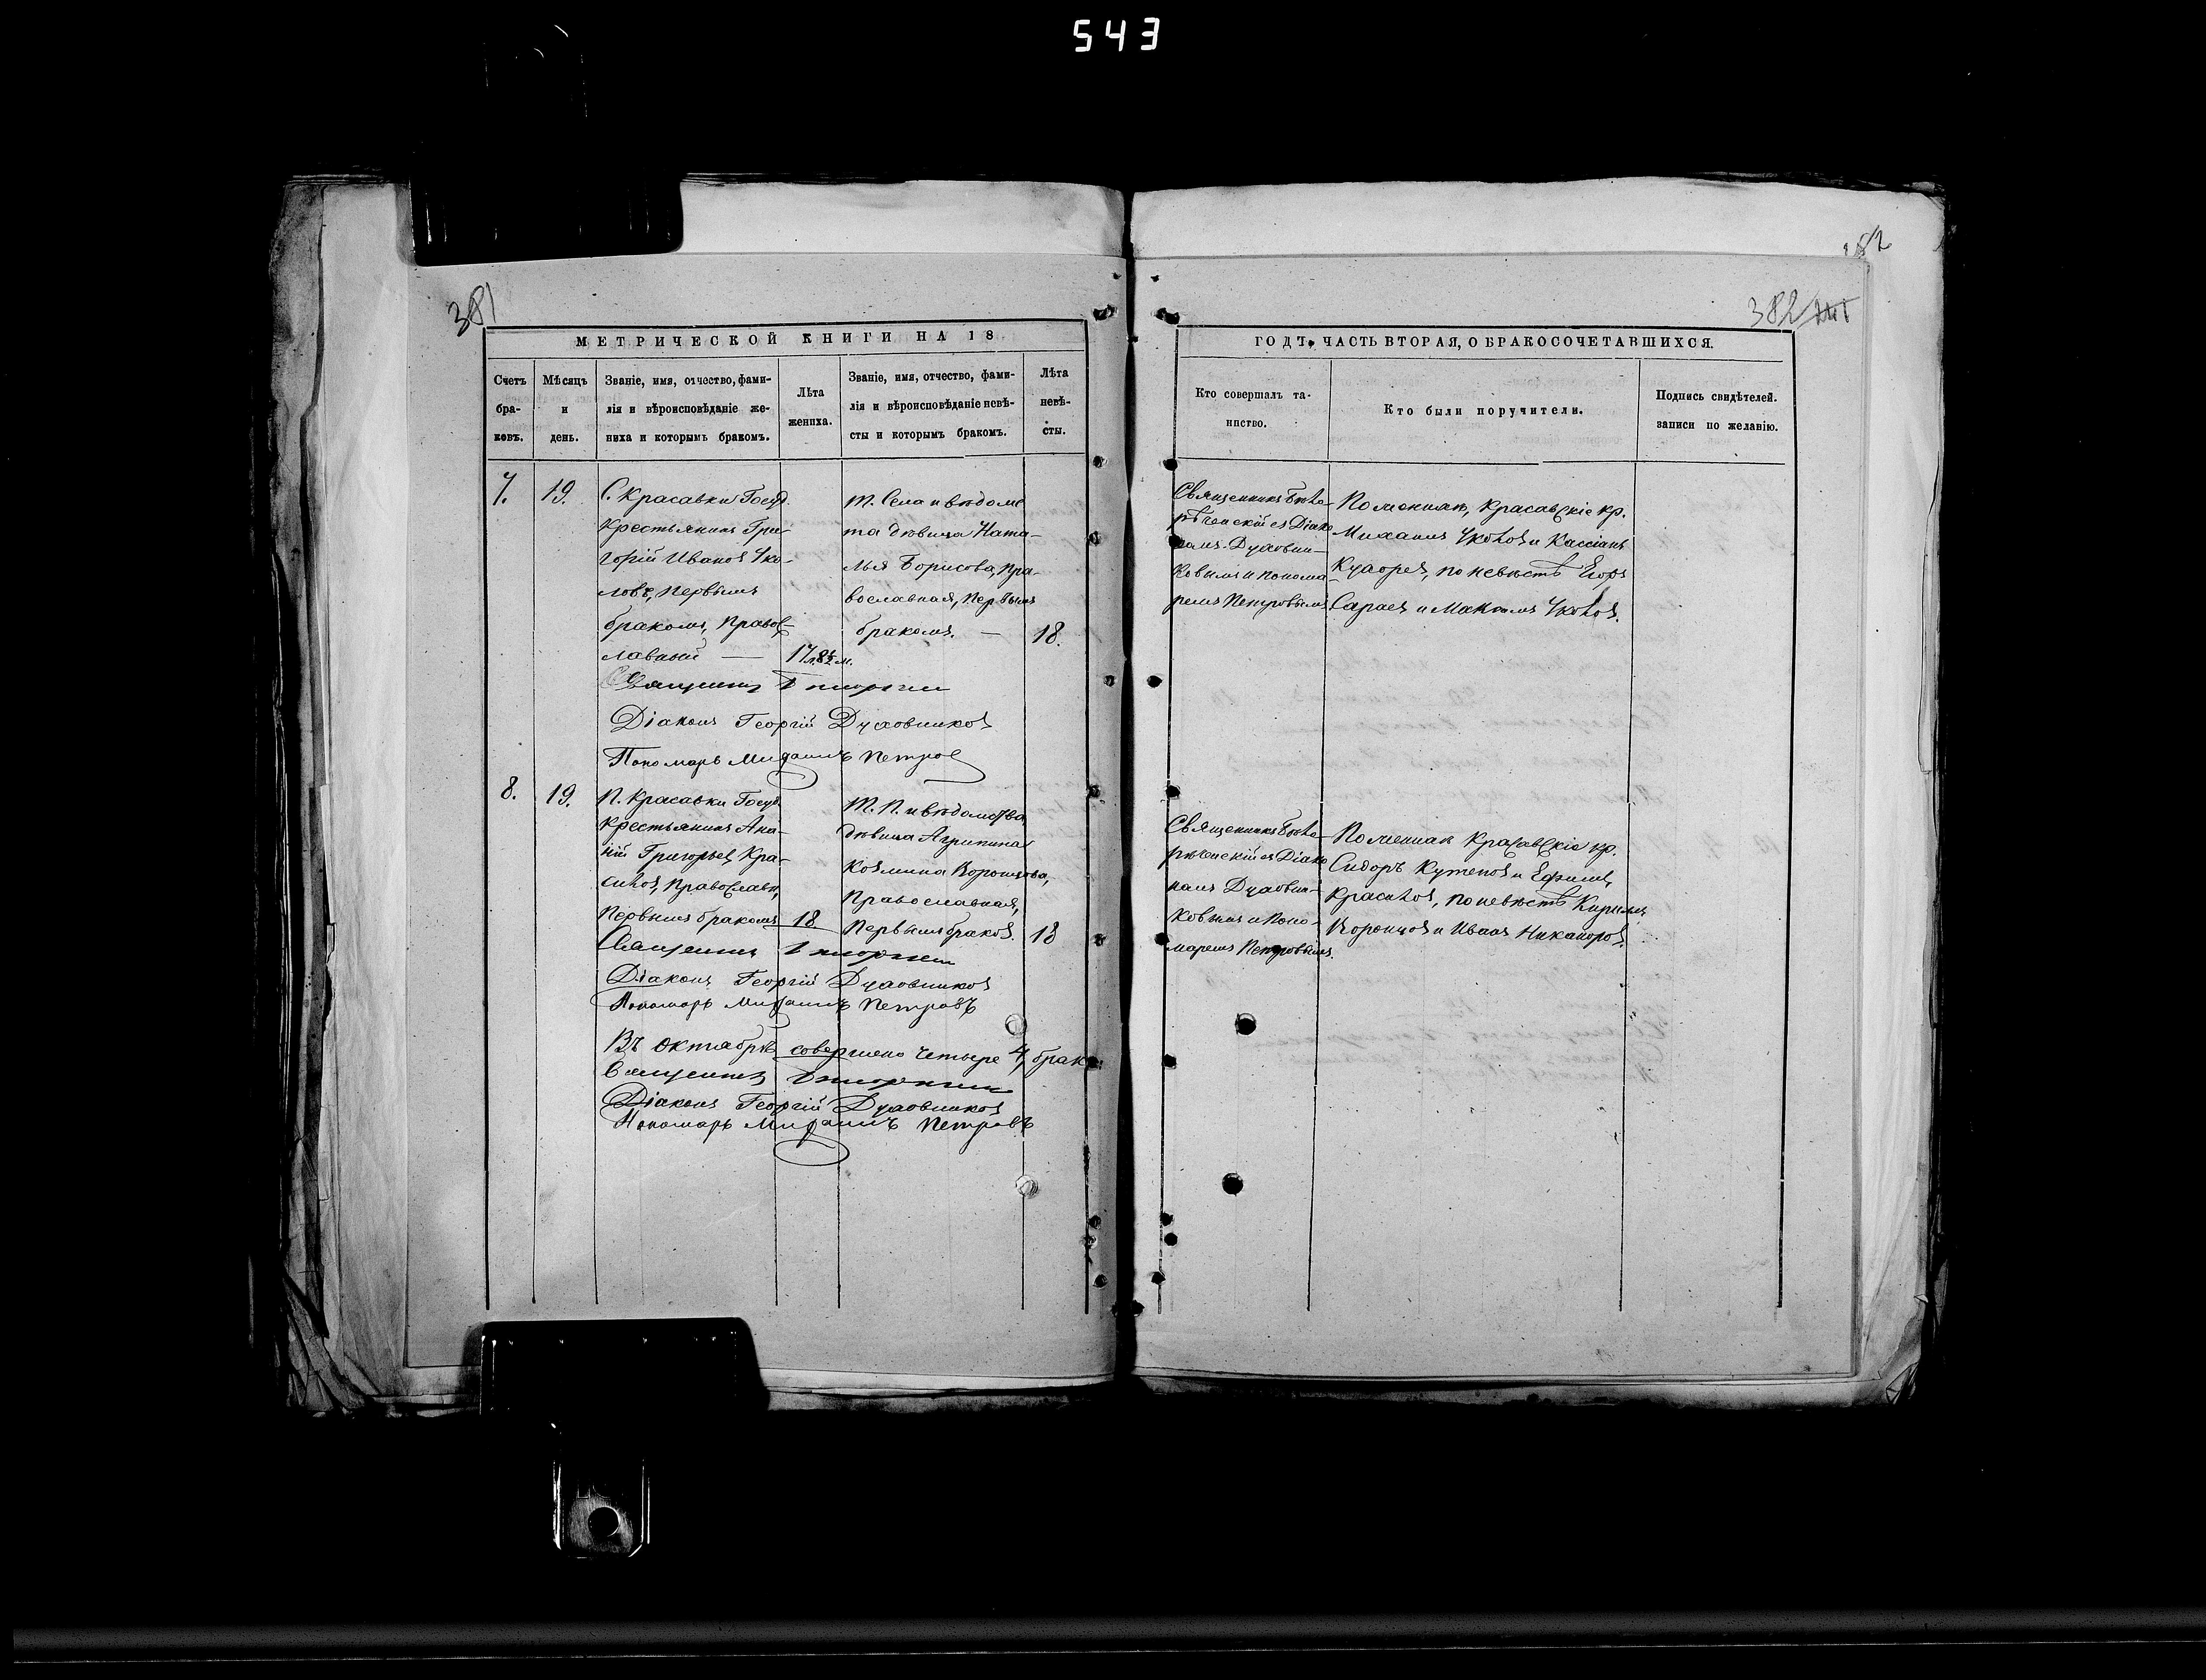 543
381
382
МЕТРИЧЕСКОЙ КНИГИ НА 18
Счетъ бра-
ковъ.
Мѣсяцъ
и
день.
Званіе, имя, отчество, фами-
лія и вѣроисповѣданіе же-
ниха и которымъ бракомъ.
Лѣта
жениха.
Званіе, имя, отчество, фами-
лія и вѣроисповѣданіе невѣ-
сты и которымъ бракомъ.
Лѣта
невѣ-
сты.
7.
19.
С. Красавки Госуд.
Крестьянинъ Гри-
горій Ивановъ Уко-
ловъ, первымъ
бракомъ, Правос-
лавный —
17
Т. Села и вѣдомс
тва дѣвица Ната-
лья Борисова, Пра-
вославная, первымъ
бракомъ. —
18.
Священникъ
Діаконъ Георгій Духовниковъ
Пономарь Михаилъ Петровъ
8.
19.
П. Красавки Госуд.
Крестьянинъ Ана-
ній Григорьевъ Кра-
сиковъ, Православн,
первымъ бракомъ
18
Т. П. и вѣдомства
дѣвица Агрипина
Козмина Воронцова,
Православная,
первымъ браком.
18
Священникъ
Діаконъ Георгій Духовниковъ
Пономарь Михаилъ Петровъ
Въ октябрѣ совершено четыре 4, брака
Священникъ
Діаконъ Георгій Духовниковъ
Пономарь Михаилъ Петровъ
382
ГОДЪ, ЧАСТЬ ВТОРАЯ, О БРАКОСОЧЕТАВШИХСЯ.
Кто совершалъ та-
инство.
Кто были поручители.
Подпись свидѣтелей.
записи по желанію.
Священникъ
рѣченскій съ Діако
номъ Духовни-
ковымъ и понома-
ремъ Петровымъ.
По женихѣ, Красавскіе кр.
Михаилъ Уколовъ и Кассіанъ
по невѣстѣ Егоръ
Сараевъ и Максимъ Уколовъ.
Священникъ
рѣченскій съ Діако
номъ Духовни-
ковымъ и Поно-
маремъ Петровымъ.
По женихѣ Красавскіе кр.
Сидоръ Кутеповъ и Ефимъ
Красиковъ, по невѣстѣ Кирилъ
Воронцовъ и Иванъ Никаноровъ.